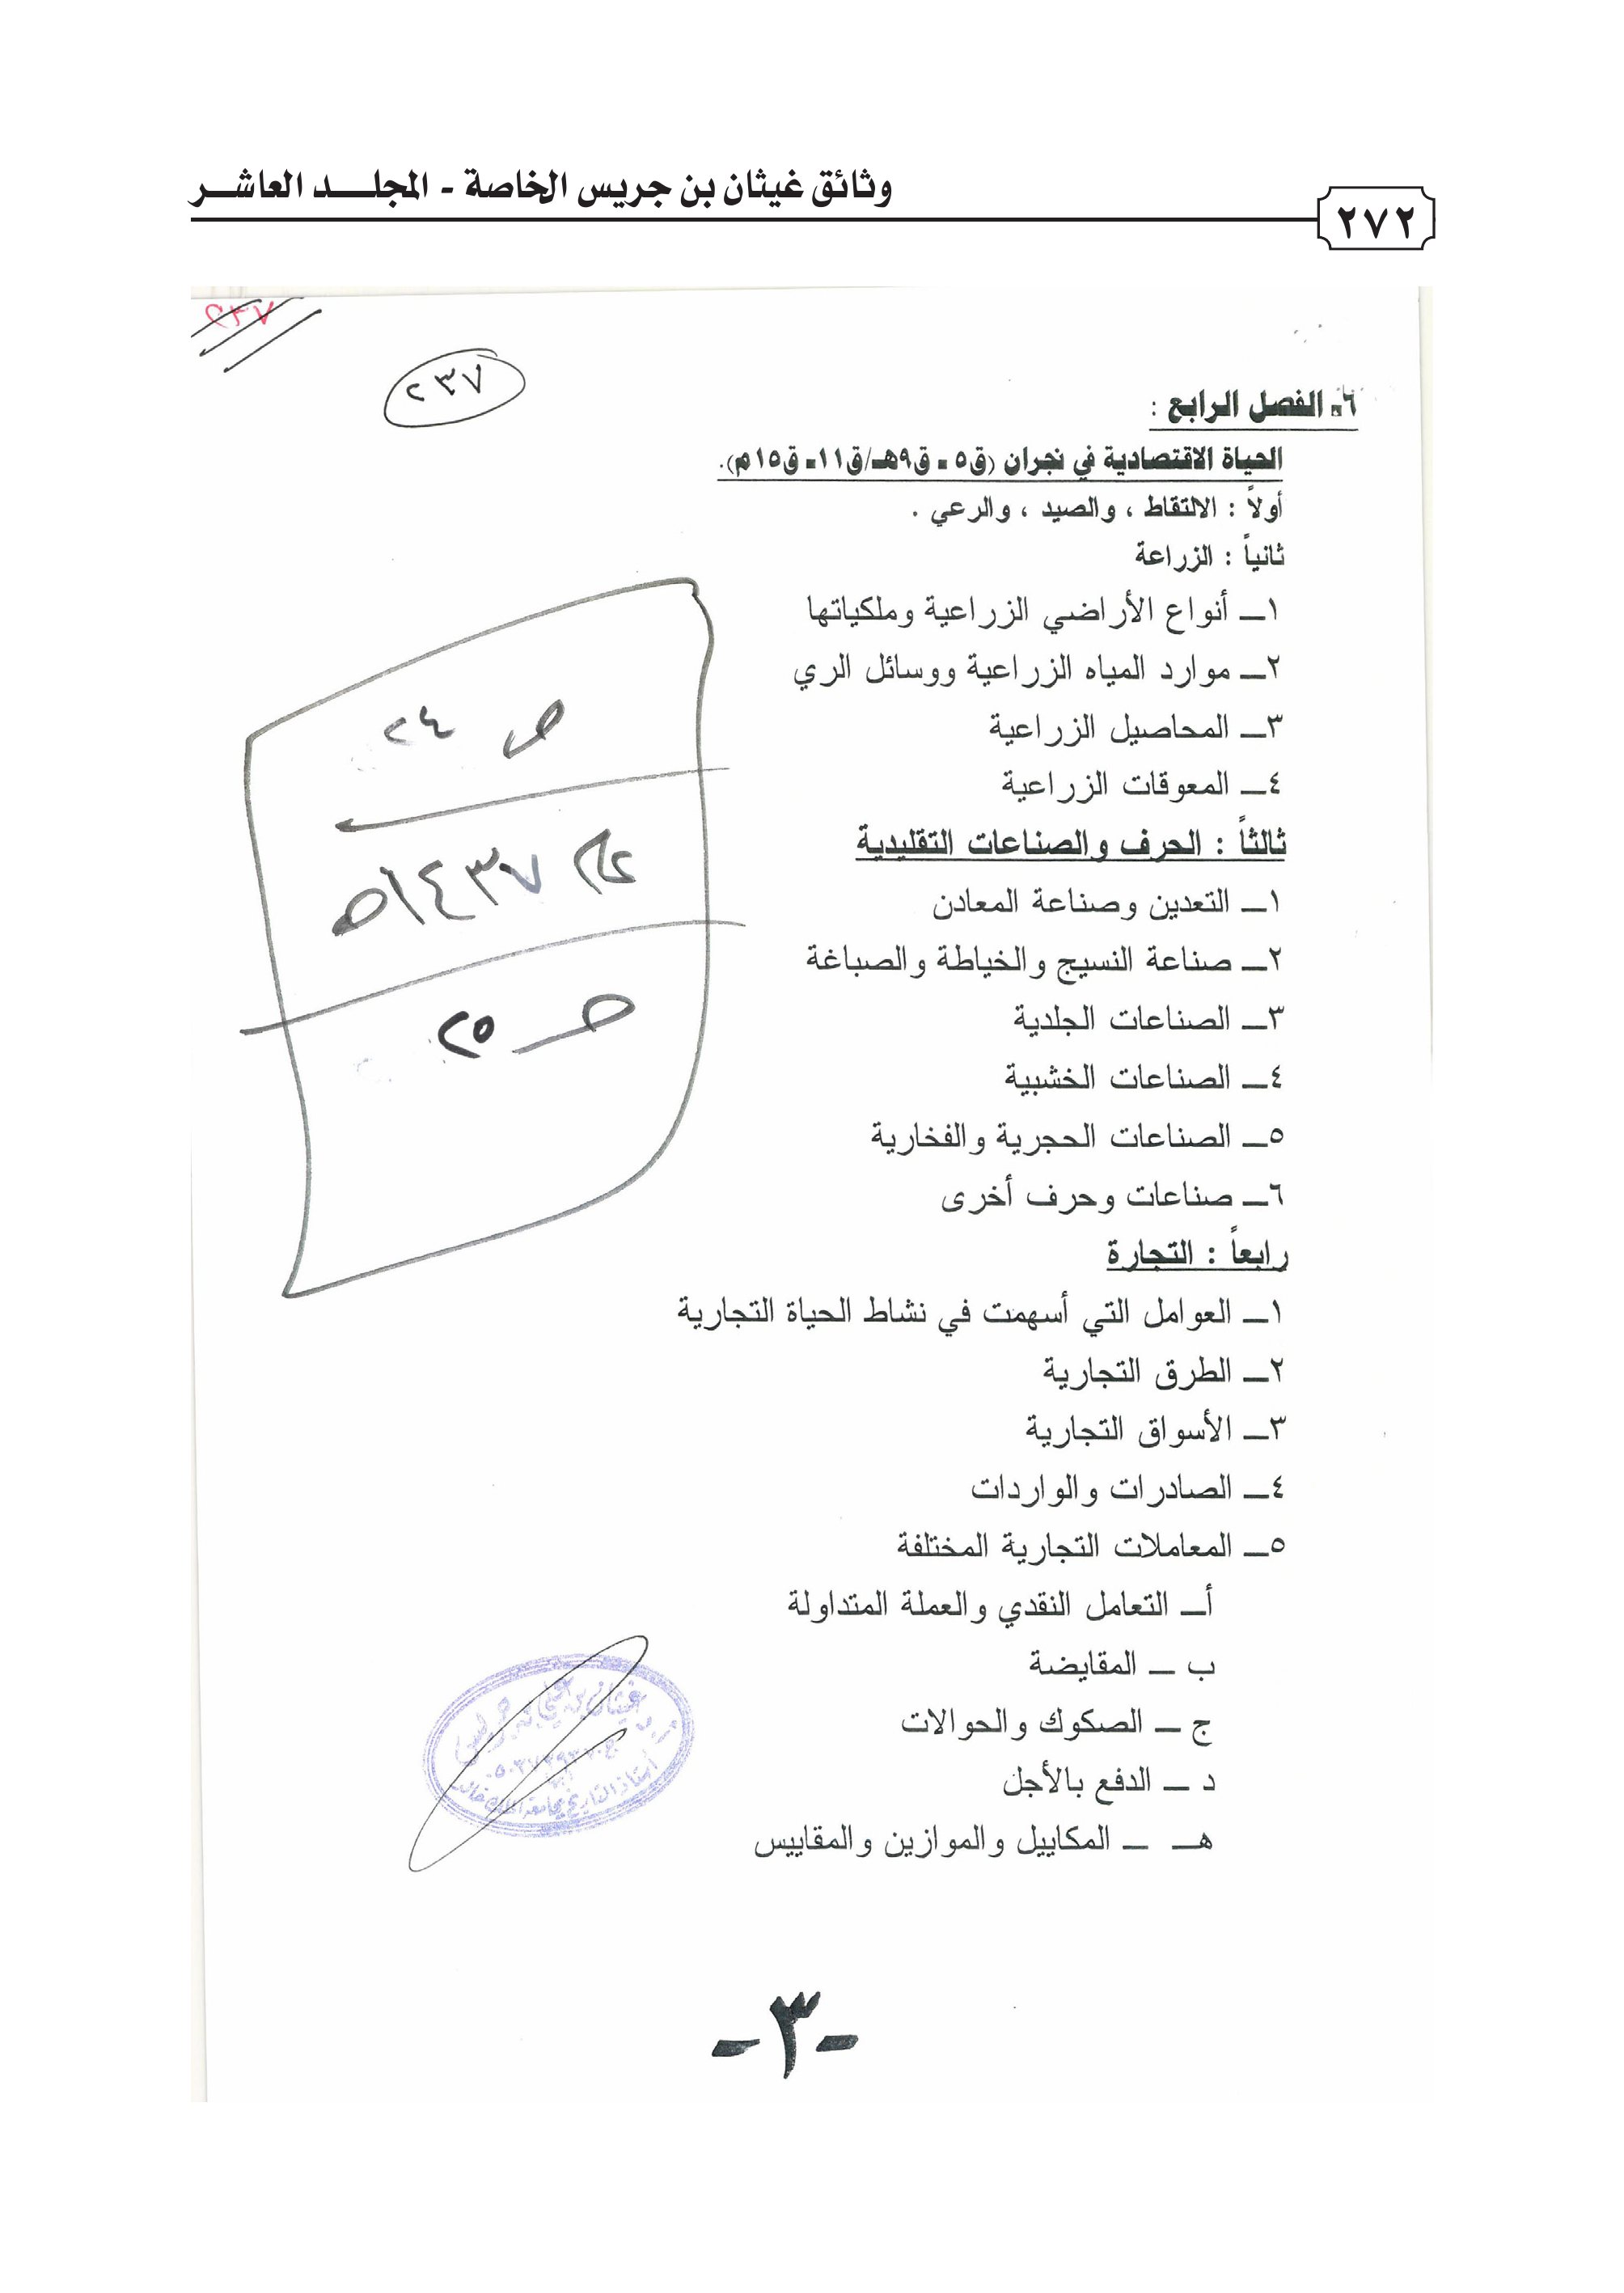 وثائق غيثان بن جريس الخاصة - المجلـــد العاشـــر
٢٧٢
٢٣٧
٢٣٧
٦- الفصل الرابع :
الحياة الاقتصادية في نجران (ق٥ - ق٩هـ/ق١١- ق١٥م).
أولاً : الالتقاط ، والصيد ، والرعي .
ثانياً : الزراعة
١ــ أنواع الأراضي الزراعية وملكياتها
٢ــ موارد المياه الزراعية ووسائل الري
٣ــ المحاصيل الزراعية
٤ــ المعوقات الزراعية
ثالثاً : الحرف والصناعات التقليدية
١ــ التعدين وصناعة المعادن
٢ــ صناعة النسيج والخياطة والصباغة
٣ــ الصناعات الجلدية
٤ــ الصناعات الخشبية
٥ــ الصناعات الحجرية والفخارية
٦ــ صناعات وحرف أخرى
رابعاً : التجارة
١ــ العوامل التي أسهمت في نشاط الحياة التجارية
٢ــ الطرق التجارية
٣ــ الأسواق التجارية
٤ــ الصادرات والواردات
٥ــ المعاملات التجارية المختلفة
أــ التعامل النقدي والعملة المتداولة
ب ــ المقايضة
ج ــ الصكوك والحوالات
د ــ الدفع بالأجل
هـ ــ المكاييل والموازين والمقاييس
ص ٢٤
١٤٣٧هـ
ص ٢٥
غيثان بن علي بن جريس
أبها
أستاذ التاريخ بجامعة الملك خالد
-٣-